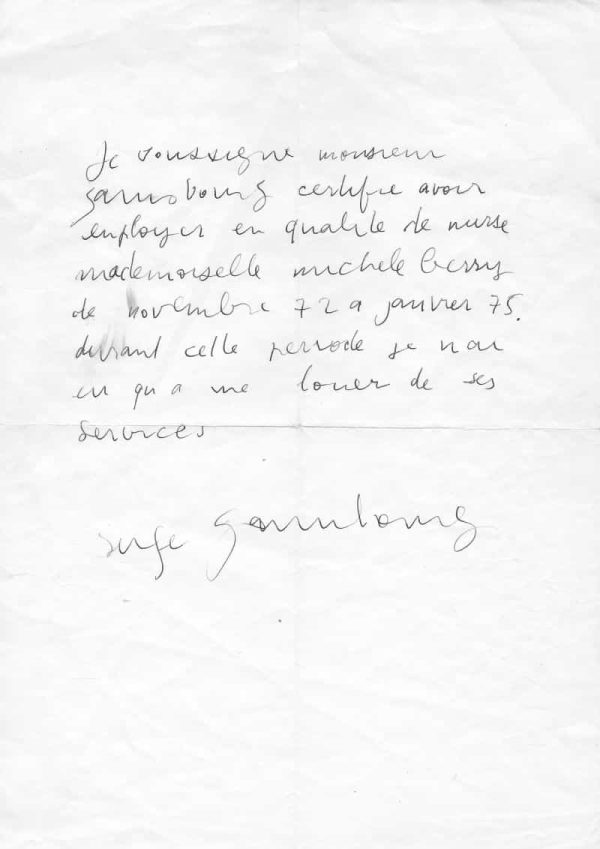 Je soussigne monsieur
gainsbourg certifie avoir
employer en qualite de nurse
mademoiselle michele
de novembre 72 a janvier 75.
durant cette periode je nai
eu qu a me louer de ses
services
serge gainsbourg